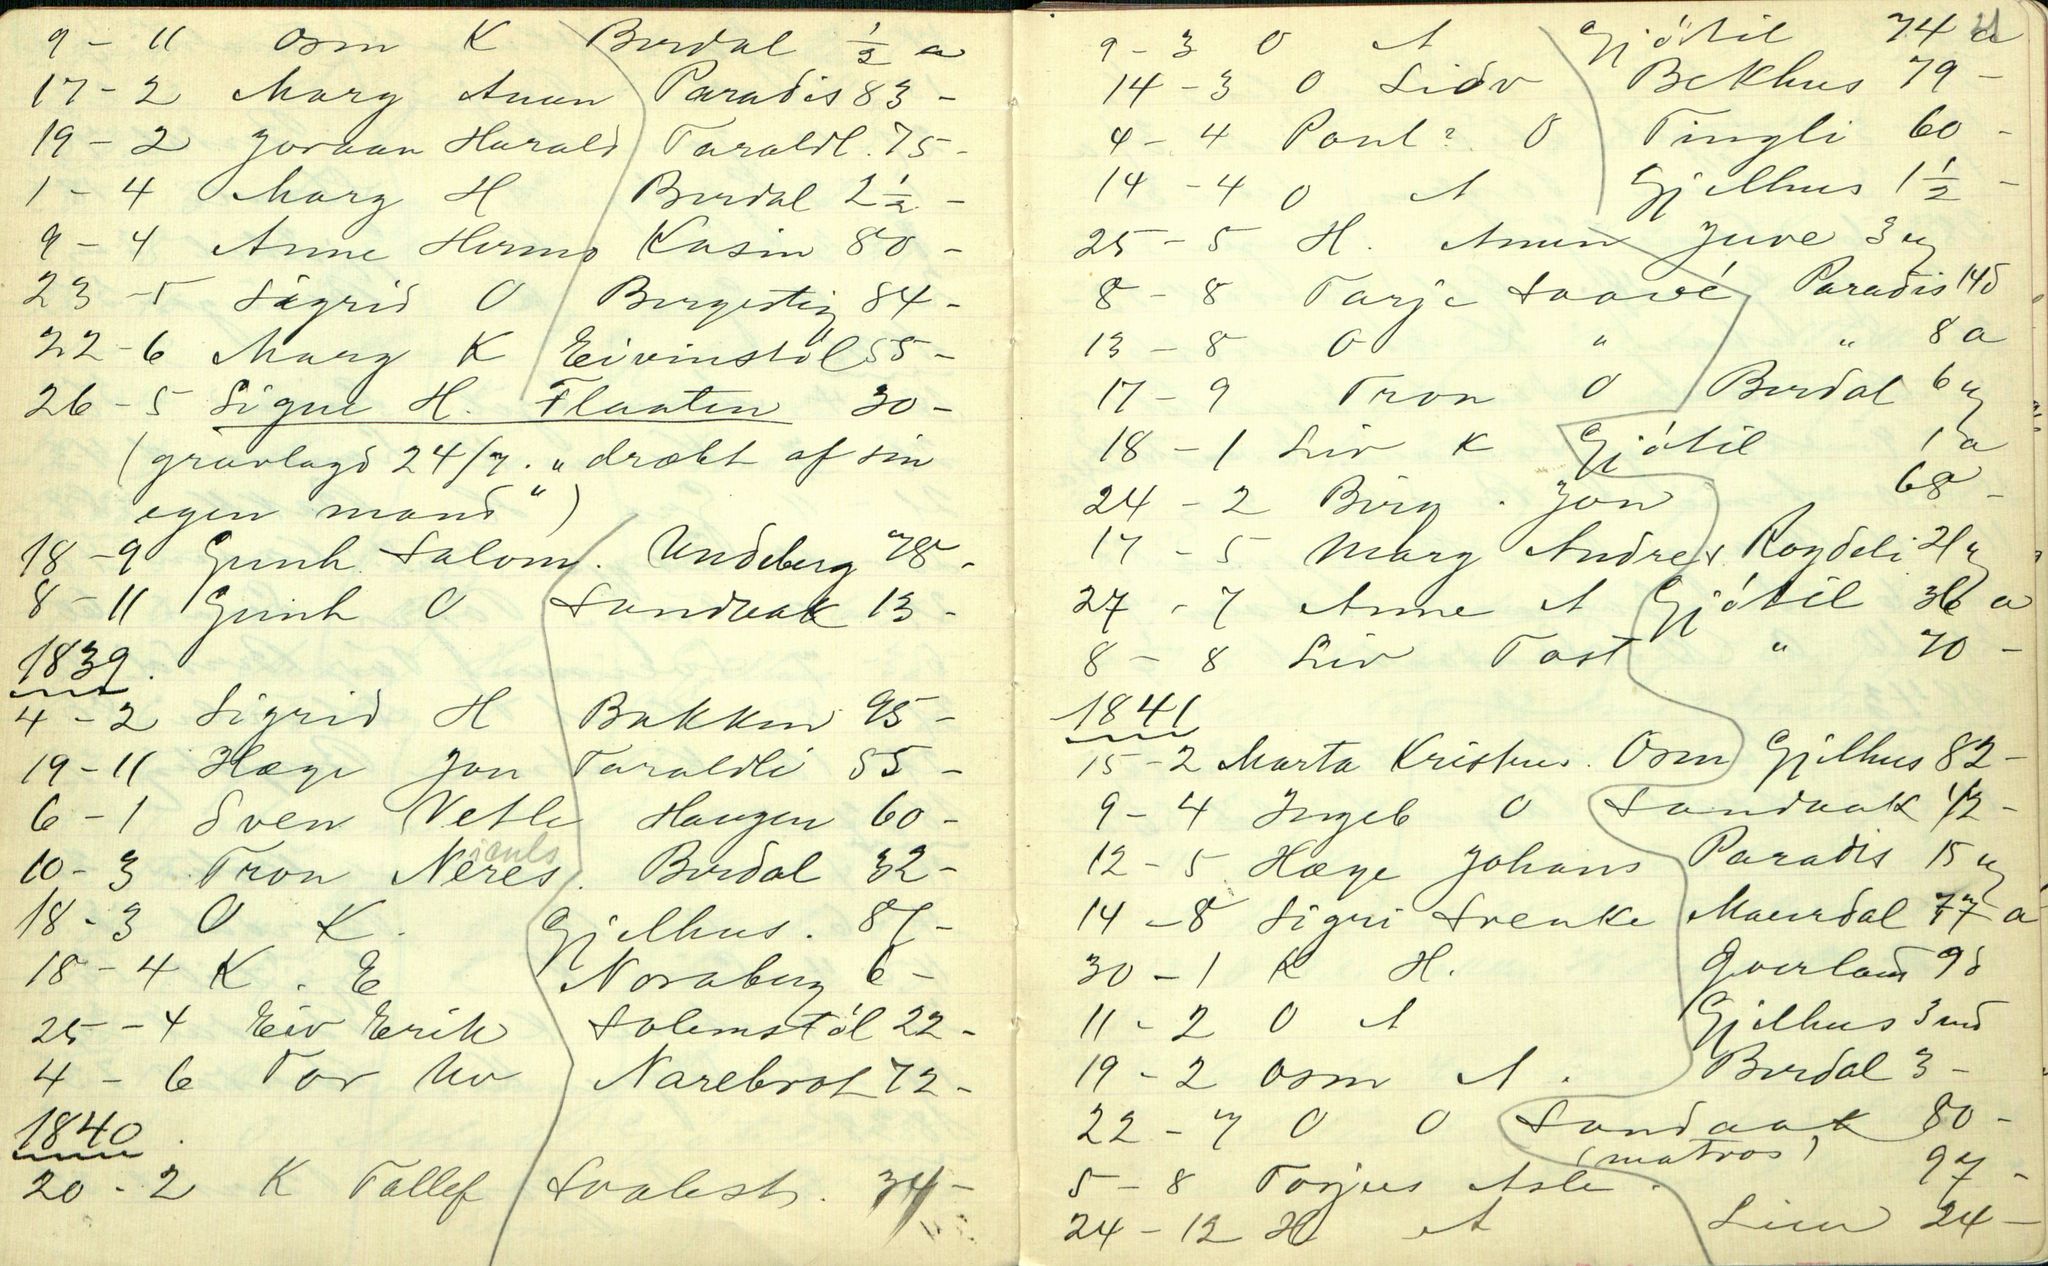 9 - 11 Osm K Burdal 1/2 a
17 - 2 Marg Anun Paradis 83 -
19 - 2 Joraan Harald Taraldl. 75 -
1 - 4 Marg H Burdal 2 1/2 -
9 - 4 Anne Herms Kasin 80 -
23 - 5 Sigrid O Bergestig 84 -
22 - 6 Marg K Eivinstöl 55 -
26 - 5 Signe H. Flaaten 30 -
(gravlagd 24/7. "dræbt af sin
egen mand")
18 - 9 Gunh. Salom. Undeberg 78 -
8 - 11 Gunh O Sandvak 13 -
1839.
4 - 2 Sigrid H Bakken 95 -
19 - 11 Hæge Jon Taraldli 55 -
6 - 1 Sven Vetle Haugen 60 -
10 - 3 Tron Neres. Burdal 32 -
18 - 3 O K. Gjelhus. 87 -
18 - 4 K. E Noraberg 6 -
25 - 4 Eiv Erik Solemstöl 22 -
4 - 6 Tor Narebrot 72 -
1840.
20 - 2 K Tallef Svalest. 34 -
9 - 3 O A Gjótil 74 a
14 - 3 O Sidv Bekhus 79 -
4 - 4 Poul? O Tingli 60 -
14 - 4 O A Gjelhus 1 1/2 -
25 - 5 H. Anun Juve 3 u
8 - 8 Tarje Saave Paradis 14 d
13 - 8 O " " 8 a
17 - 9 Tron O Burdal 6 u
18 - 1 Liv K Gjótil 1 a
24 - 2 Birg. Jon 68 -
17 - 5 Marg Andres Roydeli u
27 - 7 Anne A Gjótil 36 a
8 - 8 Liv Tost " 70 -
1841
15 - 2 Marta Kristens. Osm Gjelhus 82 -
9 - 4 Ingeb O Sandvak 42 -
12 - 5 Hæge Johans Paradis 15 u
14 - 8 Sigri Svenke Maurdal 77 a
30 - 1 K H. Gverland 9 d
11 - 2 O A Gjelhus 3 md
19 - 2 Osm A. Burdal 3 -
22 - 7 O O Sandvak 80 -
(matros)
5 - 8 Torjus Asle. 97 -
24 - 12 H A Lien 24 -